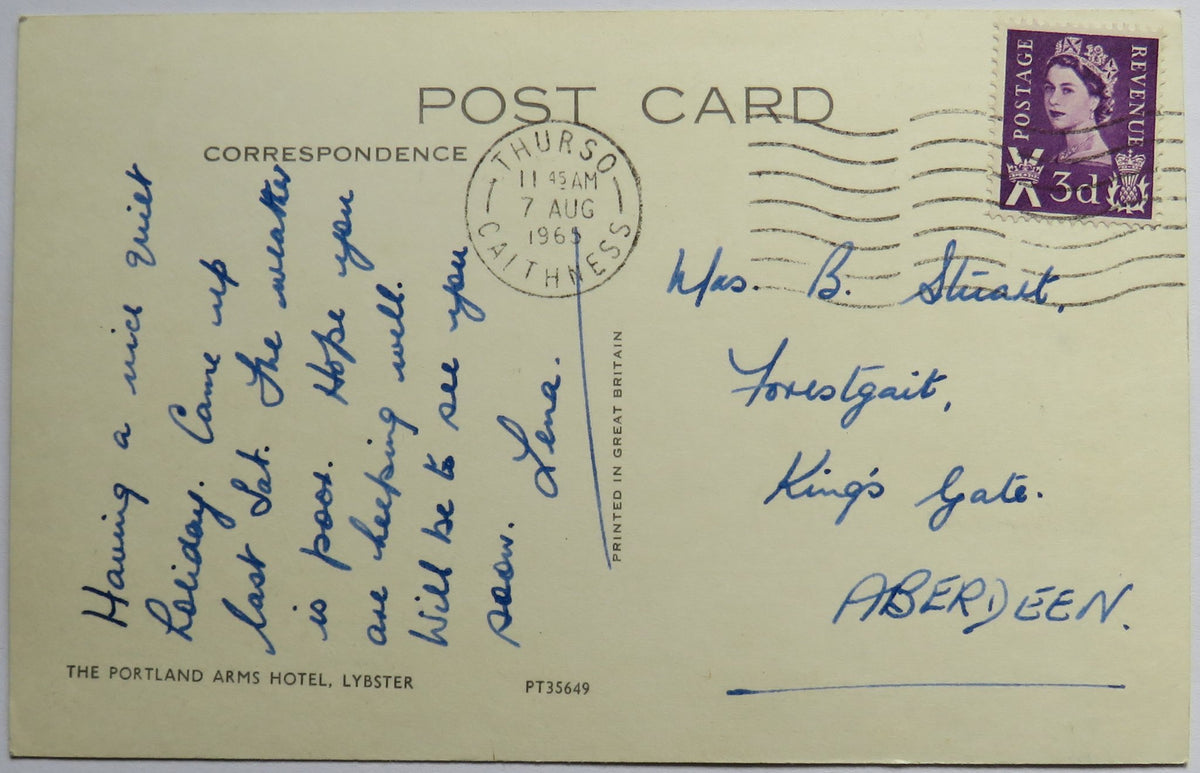 POST CARD
CORRESPONDENCE
THURSO
11 45 AM
7 AUG
1965
CAITHNESS
POSTAGE
REVENUE
3d
Having a nice quiet
holiday. Came up
last Sat. The weather
is poor. Hope you
are keeping well.
Will be to see you
soon. Lena.
PRINTED IN GREAT BRITAIN
Mrs. B. Stuart,
Forestgait,
King's Gate.
ABERDEEN.
THE PORTLAND ARMS HOTEL, LYBSTER
PT35649